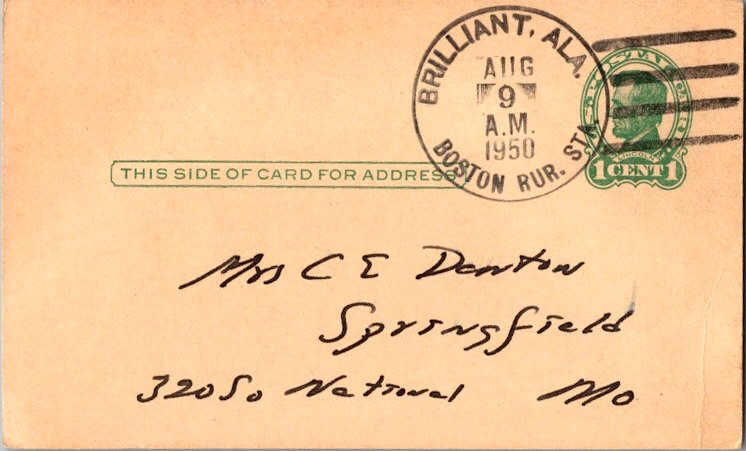 BRILLIANT, ALA.
AUG
9
A.M.
1950
BOSTON RUR. STA.
U.S. POSTAL CARD
LINCOLN
1 CENT 1
THIS SIDE OF CARD FOR ADDRESS
Mrs C E Denton
Springfield
320 So National Mo